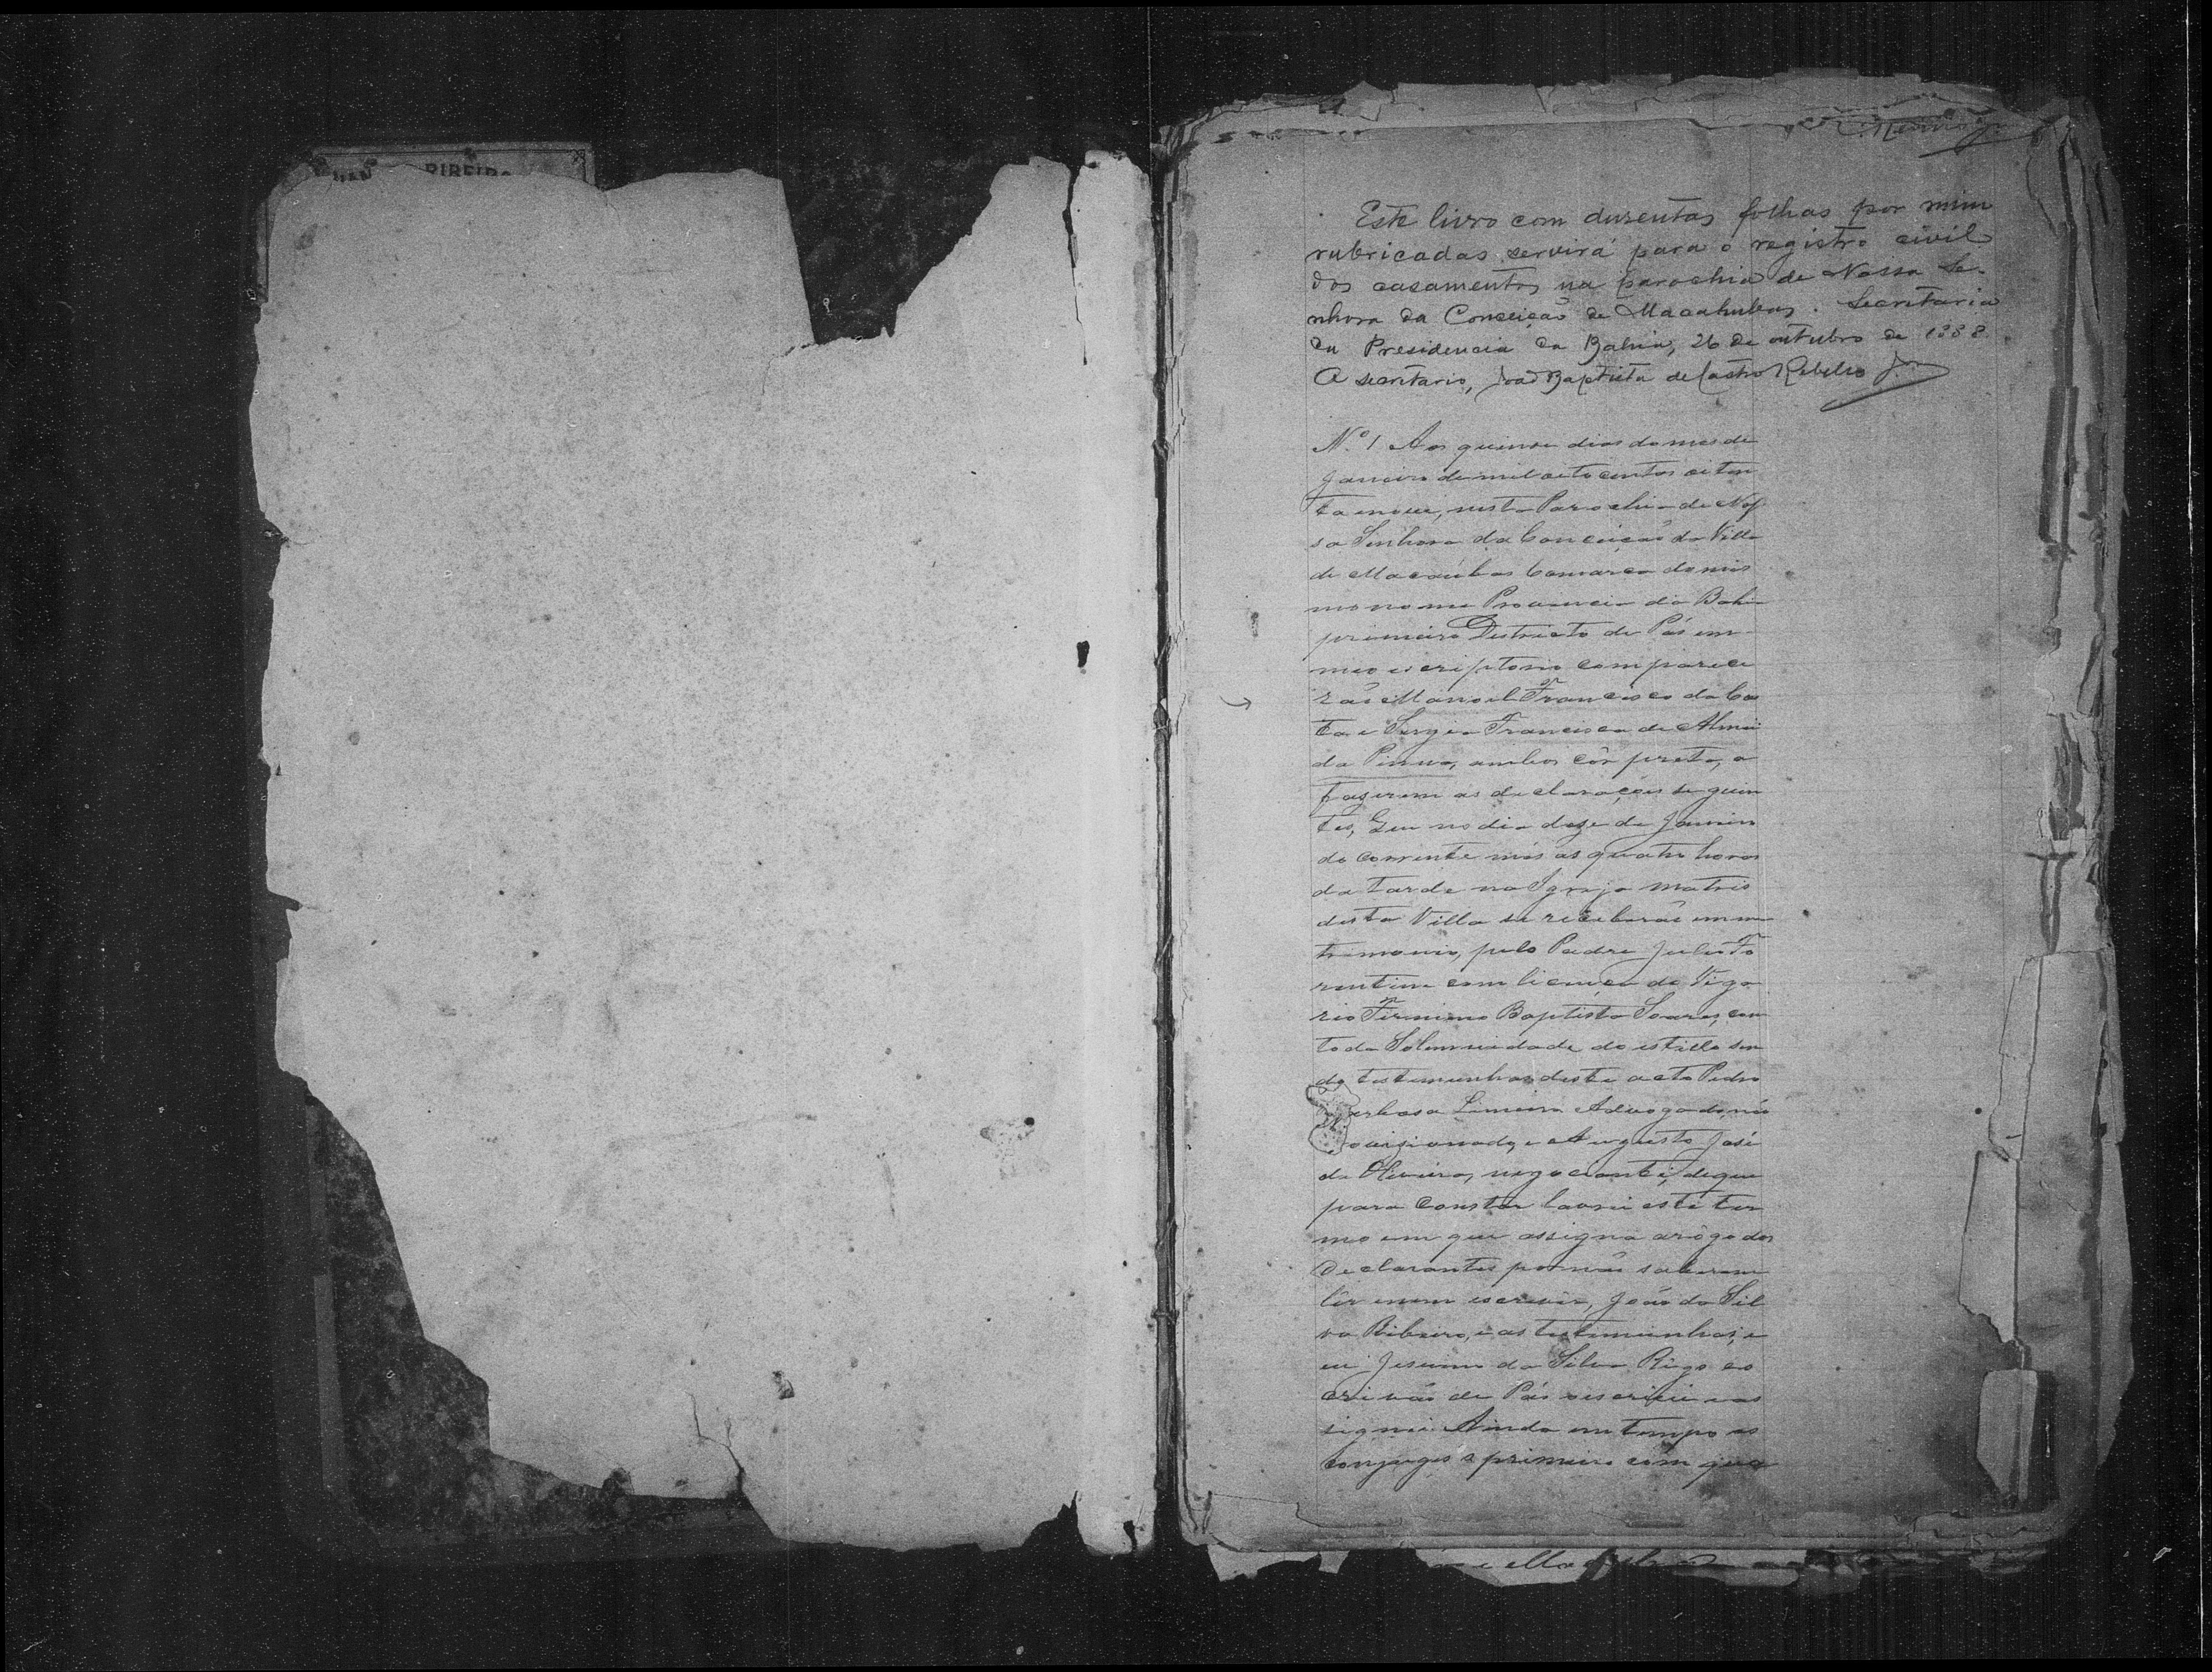 RIBEIRO
Este livro com duzentas folhas por mim
rubricadas servirá para o registro civil
dos casamentos na parochia de Nossa Se-
nhora da Conceição de Macahubas. Secretaria
da Presidencia da Bahia, 26 de outubro de 1888.
O secretario, João Baptista de Castro Rebello Jor.
Nº 1 Aos quinse dias do mes de
Janeiro de mil oito centos oiten
ta enove, nesta Parochia de Nos
sa Senhora da Conceição da Villa
de Macaúbas Comarca do mes
mo nome Provincia da Bahia
primeiro Districto de Pás em
meo escriptorio comparece
rão Manoel Francisco da Cos
ta e Sergia Francisca de Almei
da Pinna, ambos côr preta, a
fazerem as declarações seguin
tes, Que no dia doze de Janeiro
do corrente mês as quatro horas
da tarde na Igreja matris
desta Villa se receberão em ma
trimonio, pelo Padre Julio Fio
rentim com licença do Viga
rio Firmino Baptista Soares, com
toda Solemnidade do estillo sen
do testemunhas deste acto Pedro
Barbosa Limeira Advogado não
provizionado, e Augusto José
de Oliveira, negociante, de que
para constar lavrei este ter
mo em que assigna arôgo dos
Declarantes por não saberem
lêr enem escrevêr, João da Sil
va Ribeiro, e as testimunhas, e
eu Jesuino da Silva Rêgo es
crivão de Pás oescrivi eas
signei. Ainda em tempo os
conjuges o primeiro com qua
e ella